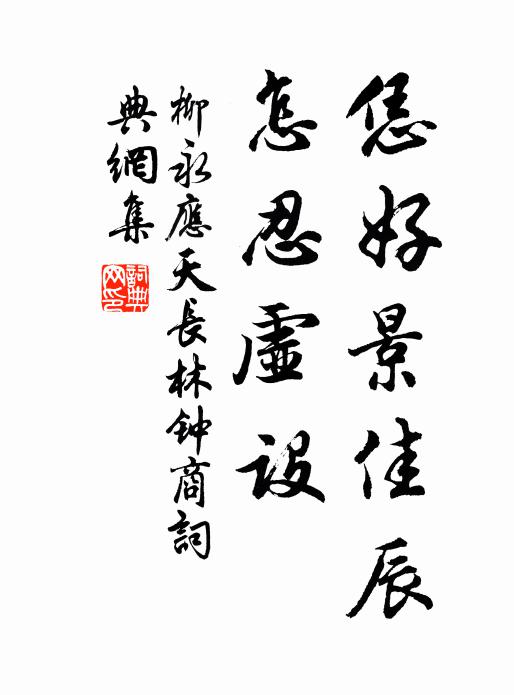 恁好景佳辰
怎忍虛設
柳永應天長林鈡商詞
典網集
詞典網印